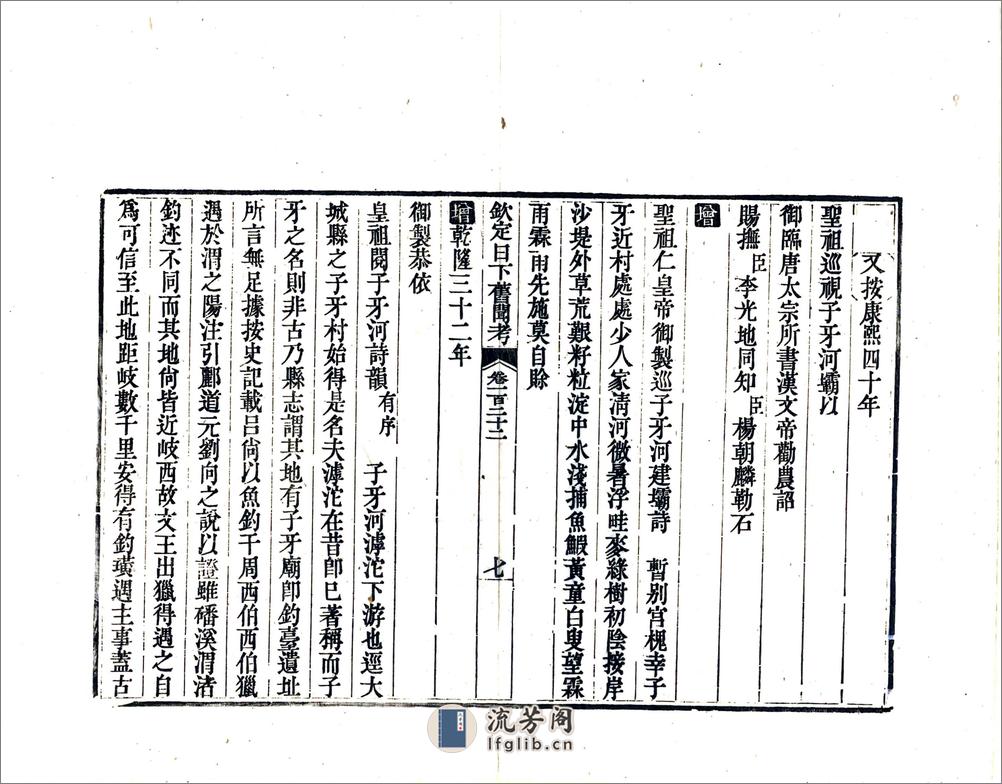 又按康熙四十年
聖祖巡視子牙河壩以
御臨唐太宗所書漢文帝勸農詔
賜撫臣李光地同知臣楊朝麟勒石
增
聖祖仁皇帝御製巡子牙河建壩詩　暫别宮槐幸子
牙近村處處少人家淸河微暑浮畦麥綠樹初陰接岸
沙堤外草荒艱籽粒淀中水淺捕魚鰕黃童白叟望霖
雨霖雨先施莫自賒
欽定日下舊聞考　卷一百二十二　七
增乾隆三十二年
御製恭依
皇祖閱子牙河詩韻有序　子牙河滹沱下游也逕大
城縣之子牙村始得是名夫滹沱在昔卽已著稱而子
牙之名則非古乃縣志謂其地有子牙廟卽釣臺遺址
所言無足據按史記載呂尙以魚釣干周西伯西伯獵
遇於渭之陽注引酈道元劉向之說以證雖磻溪渭渚
釣迹不同而其地尙皆近岐西故文王出獵得遇之自
爲可信至此地距岐數千里安得有釣璜遇主事蓋古
流芳阁
lfglib.cn